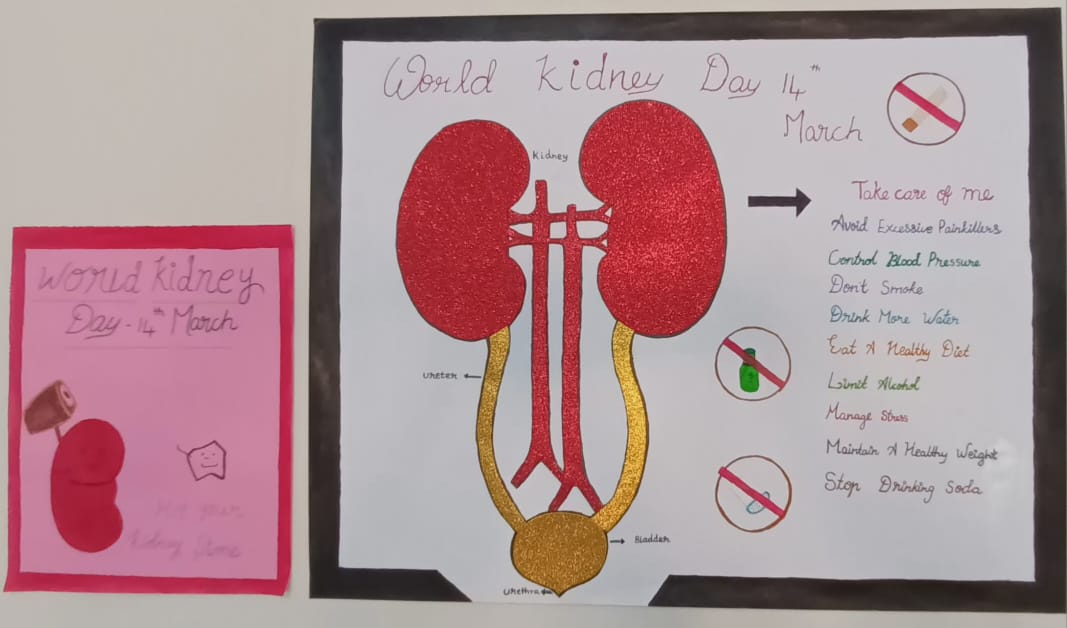 World Kidney
Day - 14th March
Kidney Stone
World Kidney Day 14th
March
Kidney
Take care of me
Avoid Excessive Painkillers
Control Blood Pressure
Don't Smoke
Drink More Water
Eat A Healthy Diet
Limit Alcohol
Manage Stress
Maintain A Healthy Weight
Stop Drinking Soda
Ureter
Bladder
Urethra